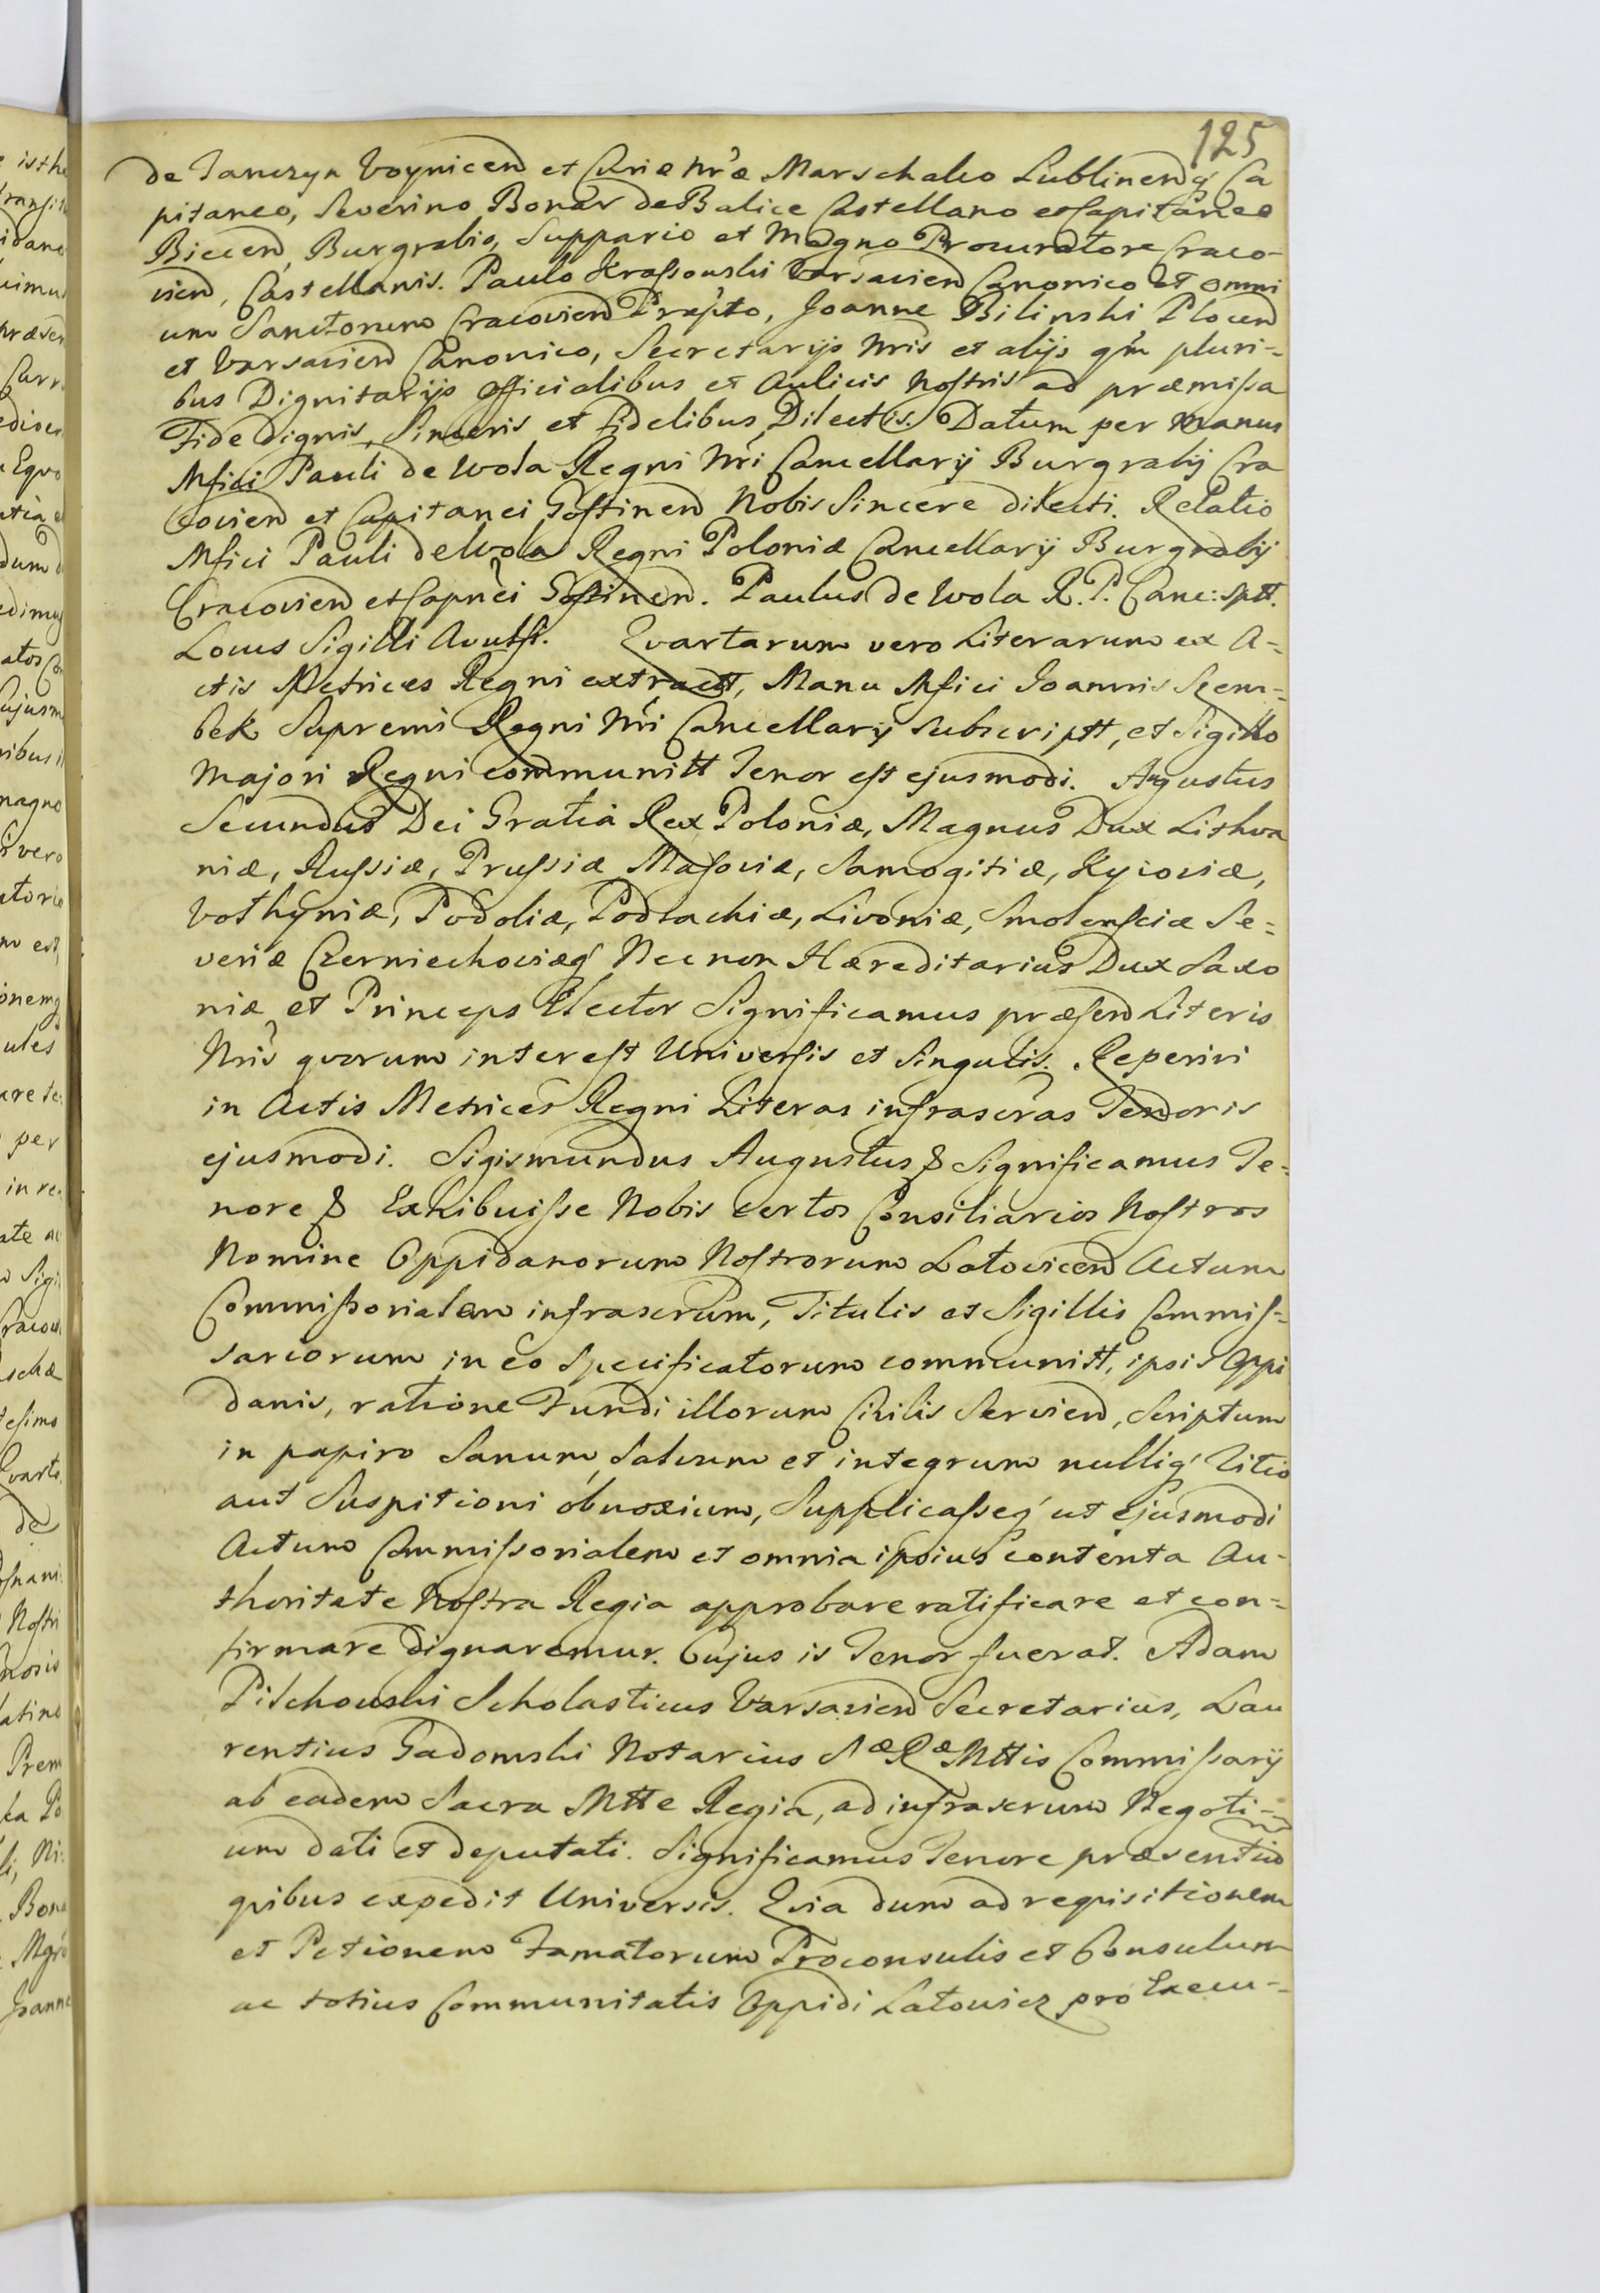 125
de Tanczyn Voynicen et Curiæ Nræ Marschalco Lublinenq́ Ca
pitaneo, Severino Bonar de Balice Castellano et Capitaneo
Biecen, Burgrabio, Suppario et Magno Procuratore Craco-
vien, Castellanis. Paulo Krassowski Varsavien Canonico et omni
um Sanctorum Cracovien Præpto, Joanne Bilinski Plocen
et Varsavien Canonico, Secretarijs Nris et alijs qm pluri-
bus Dignitarijs officialibus et Aulicis Nostris ad præmissa
Fide dignis, Sinceris et fidelibus Dilectis. Datum per manus
Mfici Pauli de Wola Regni Nri Cancellarij Burgrabij Cra
covien et Capitanei Gostinen Nobis Sincere dilecti. Relatio
Mfici Pauli de Wola Regni Poloniæ Cancellarij Burgrabij
Cracovien et Capnei Gostinen. Paulus de Wola R. P. Canc: sptt.
Locus Sigilli Avulsi. Qvartarum vero Literarum ex A-
ctis Metrices Regni extractt, Manu Mfici Joannis Szem-
bek Supremi Regni Nri Cancellarij subscriptt, et Sigillo
Majori Regni communitt Tenor est ejusmodi. Augustus
Secundus Dei Gratia Rex Poloniæ, Magnus Dux Lithva
niæ, Russiæ, Prussiæ Masoviæ, Samogitiæ, Kyioviæ,
Volhyniæ, Podoliæ, Podlachiæ, Livoniæ, Smolensciæ Se-
veriæ Czerniechoviæq́ Necnon Hæreditarius Dux Saxo
niæ et Princeps Elector Significamus præsen Literis
Nris qvorum interest Universis et Singulis. Reperiri
in Actis Metrices Regni Literas infrascras Tenoris
ejusmodi. Sigismundus Augustus & Significamus Te-
nore & Exhibuisse Nobis certos Consiliarios Nostros
Nomine Oppidanorum Nostrorum Latovicen Actum
Commissorialem infrascrum, Titulis et Sigillis Commis-
sariorum in eo Specificatorum communitt, ipsis Oppi
danis, ratione Fundi illorum Civilis Servien, Scriptum
in papiro Sanum, Salvum et integrum nulliq́ Vitio
aut Suspitioni obnoxium, Supplicasseq́ ut ejusmodi
Actum Commissorialem et omnia ipsius contenta Au-
thoritate Nostra Regia approbare ratificare et con-
firmare dignaremur. Cujus is Tenor fuerat. Adam
Pilchowski Scholasticus Varsavien Secretarius, Lau
rentius Gadomski Notarius Sæ Ræ Mttis Commissarij
ab eadem Sacra Mtte Regia, ad infrascrum Negoti-
um dati et deputati. Significamus Tenore præsentium
qvibus expedit Universis. Qvia dum ad reqvisitionem
et Petionem Famatorum Proconsulis et Consulum
ac totius Communitatis Oppidi Latowicz pro Execu-